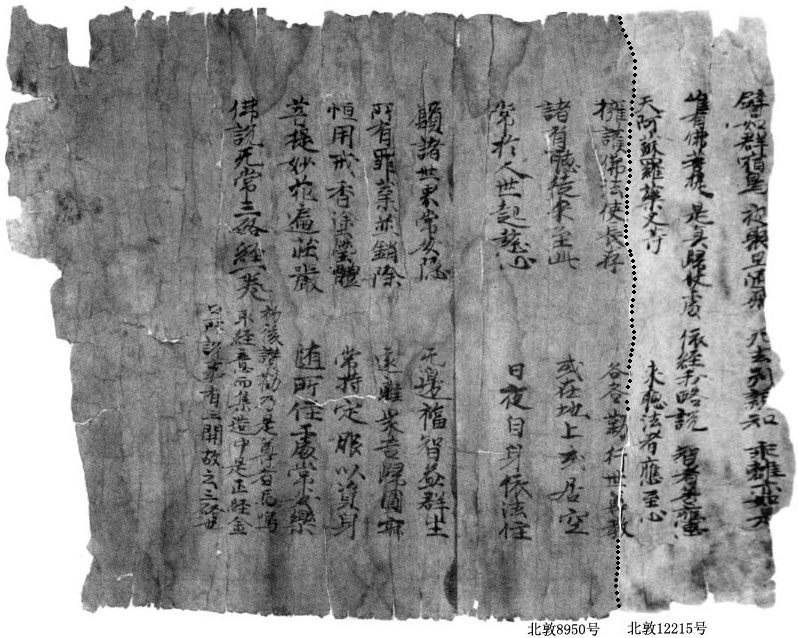 譬如群宿鳥 夜聚旦隨飛 死去別親知 乖離亦如是
唯有佛菩提 是真歸仗處 依經我略說 智者善應思
天阿蘇羅藥叉等 來聽法者應至心
擁護佛法使長存 各各勤行世尊教
諸有聽徒來至此 或在地上或居空
常於人世起慈心 日夜自身依法住
願諸世界常安隱 无邊福智益群生
所有罪業並銷除 遠離衆苦歸圓寂
恒用戒香塗瑩體 常持定服以資身
菩提妙花遍莊嚴 隨所住處常安樂
佛說无常三啓經一卷
初後讚勸乃是尊者馬鳴
取經意而集造中是正經金
口所說事有三開故云三啓
北敦8950号
北敦12215号